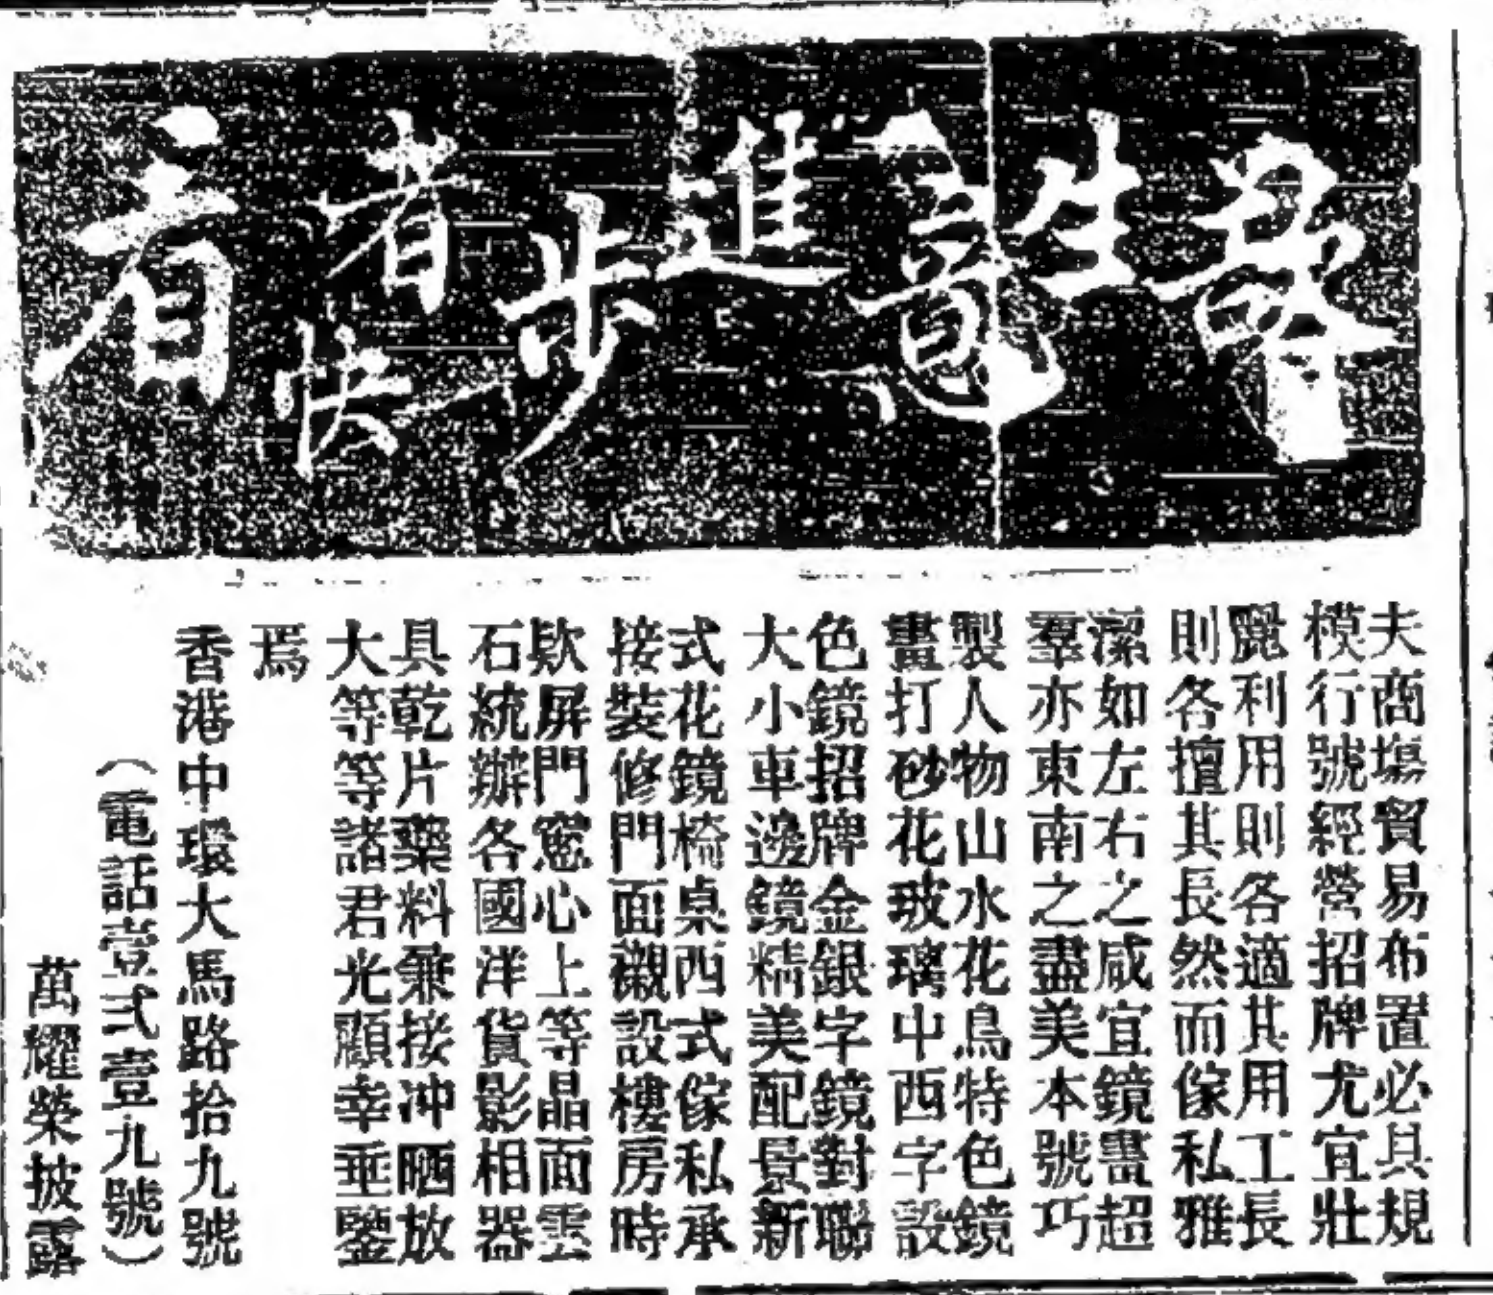 生意進步者快看
夫商塲貿易布置必具規
模行號經營招牌尤宜壯
麗利用則各適其用工長
則各擅其長然而傢私雅
潔如左右之咸宜鏡畫超
羣亦東南之盡美本號巧
製人物山水花鳥特色鏡
畫打砂花玻璃中西字設
色鏡招牌金銀字鏡對聯
大小車邊鏡精美配景新
式花鏡椅桌西式傢私承
接裝修門面襯設樓房時
欵屏門窓心上等晶面雲
石統辦各國洋貨影相器
具乾片藥料兼接冲晒放
大等等諸君光顧幸垂鑒
焉
香港中環大馬路拾九號
（電話壹弍壹九號）
萬耀榮披露